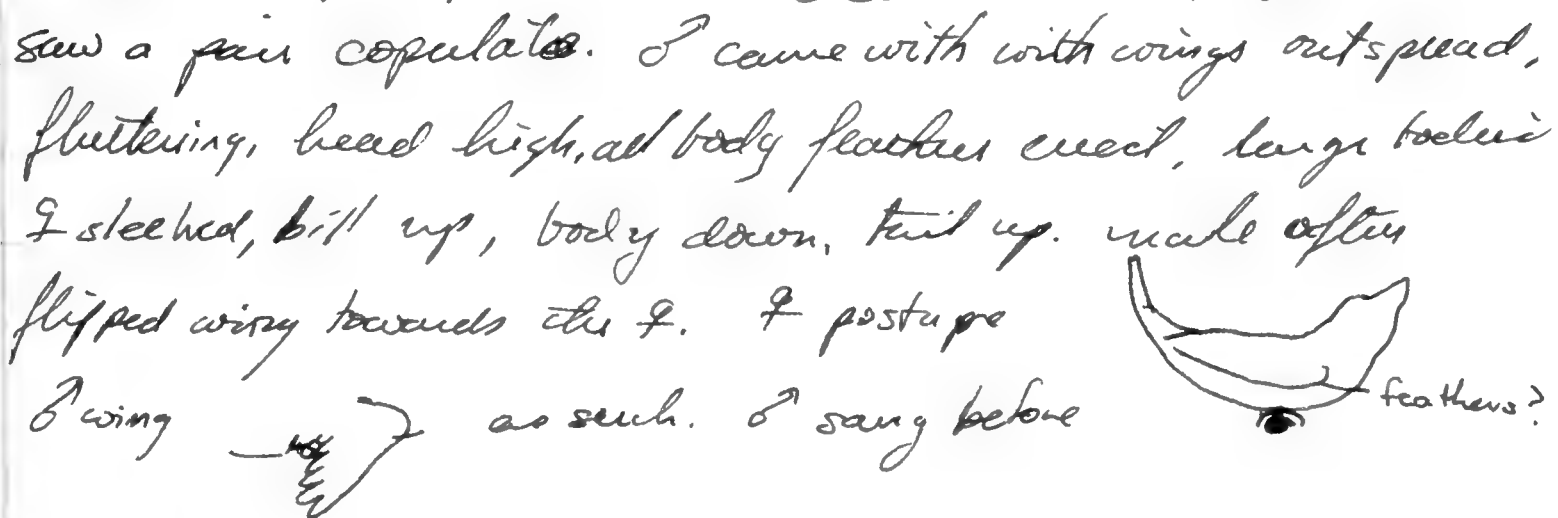 saw a pair copulate. ♂ came with with wings outspread,
fluttering, head high, all body feathers erect, large
♀ sleeked, bill up, body down, tail up. male often
flipped wing towards the ♀. ♀ posture
♂ wing as such. ♂ sang before
feathers?